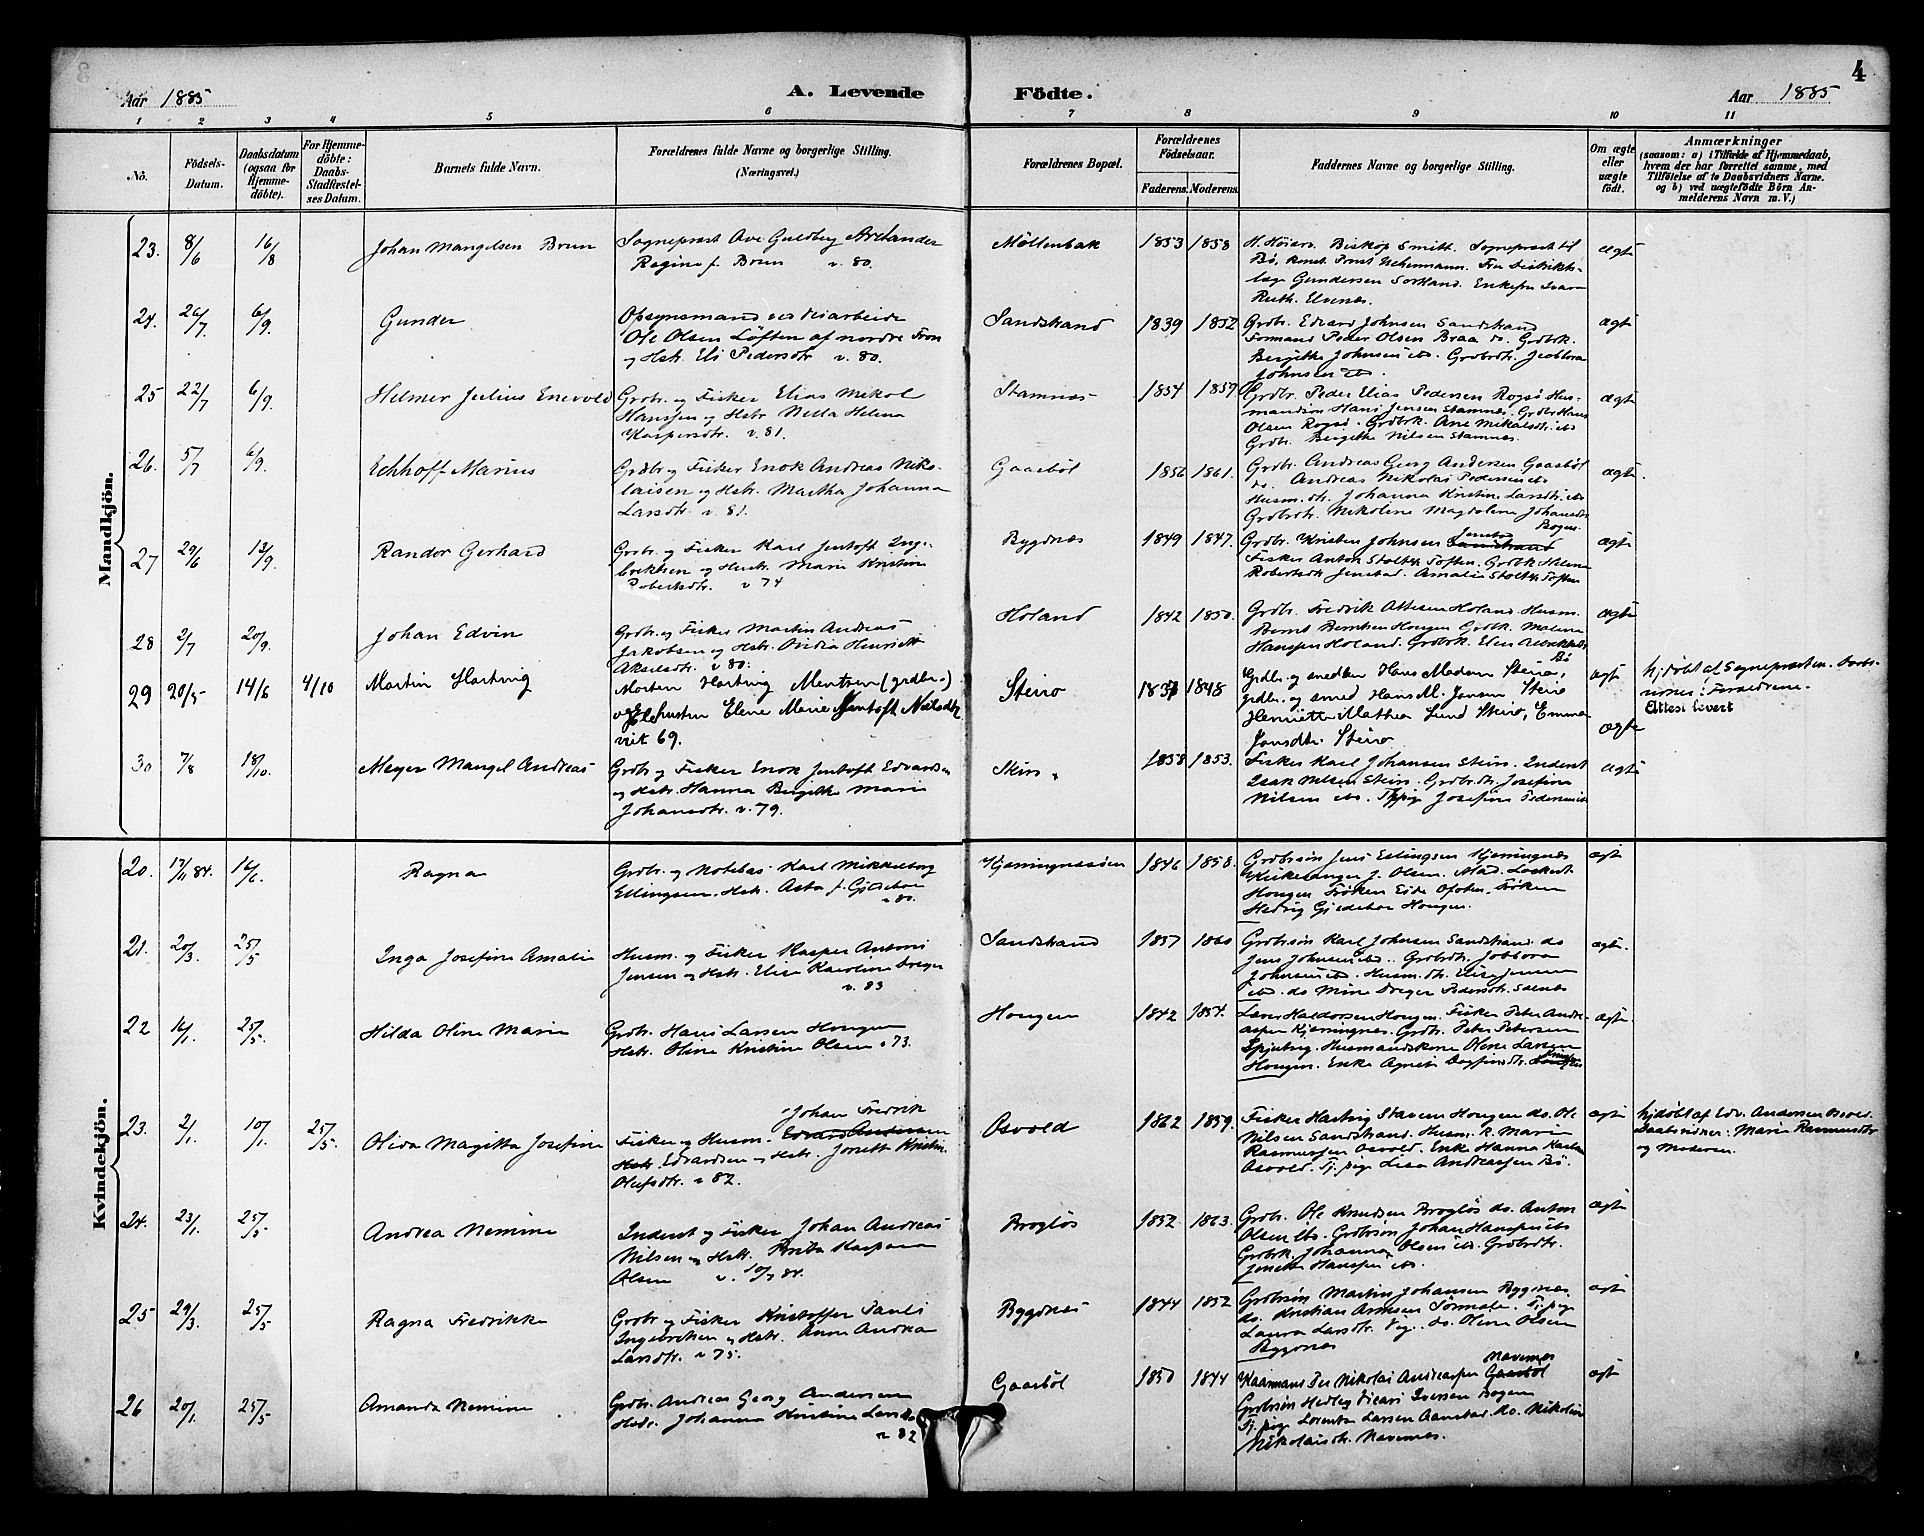 Aar 1885
A. Levende
Födte.
Aar 1885
4
1 2 3 4 5 6 7 8 9 10 11
No.
Födsels-
Datum.
Daabsdatum
(ogsaa for
Hjemme-
döbte).
For Hjemme-
döbte:
Daabs-
Stadfæstel-
ses Datum.
Barnets fulde Navn.
Forældrenes fulde Navne og borgerlige Stilling.
(Næringsvei.)
Forældrenes Bopæl.
Forældrenes
Födselsaar.
Faderens. Moderens.
Faddernes Navne og borgerlige Stilling.
Om ægte
eller
uægte
födt.
Anmærkninger
(saasom: a) i Tilfælde af Hjemmedaab,
hvem der har forrettet samme, med
Tilföielse af to Daabsvidners Navne,
og b) ved uægtefödte Börn An-
melderens Navn m. V.)
Mandkjön.
23. 8/6 16/8 Johan Mangelsen Brun
Sogneprest Ove Guldberg Archander
Regine f. Brun v. 80.
Møllenbak 1853 1858
H. Høierv. Biskop Smitt. Sogneprest til
Gundersen Sortland. Enkefru
Ruth. Elvenes.
ægte
24. 26/7 6/9 Gunder
Opsynsmand ved Veiarbeide
Ole Olsen Løften af nordre Fron
og Hstr. Eli Pedersdtr v. 80.
Sandstrand 1839 1852
Grdbr. Edvard Johnsen Sandstrand
Formand Peder Olsen Braa do. Grdbrk.
Bergitte Johnsen ibd. Grdbrdtr. Jeobbora
Johnsen ibd.
ægte
25 22/7 6/9 Helmer Julius Enevold
Grdbr. og Fisker Elias Mikal
Hanssen og Hstr Nella Helena
Kaspersdtr. v. 81.
Stamnes 1854 1859.
Grdbr. Peder Elias Pedersen Rogsø Hus-
mandsøn Hans Jensen Stamnes. Grdbr Hans
Olsen Rogsø. Grdbrk. Ane Mikalsdtr. ibd
Grdbr. Bergitte Nilsen Stamnes.
ægte
26. 5/7 6/9 Echhoff Marius
Grdbr. og Fisker Enok Andreas Niko-
laisen og Hstr. Martha Johanna
Larsdtr. v. 81.
Gaasbøl 1856 1861.
Grdbr. Andreas Georg Andersen Gaasbøl
do. Andreas Nikolai Pedersen ibd
Husm. dtr. Johanna Kristine Larsdtr. ibd
Grdbrdtr. Nikoline Magdalena Johansdtr
Bogen.
ægte.
27 29/6 13/9. Randor Gerhard
Grdbr. og Fisker Karl Jentoft Inge-
brektsen og Hustr. Marie Kristine
Robertsdtr. v 74
Bygdnes 1849 1847.
Grdbr. Kristen Johnsen Jenstad Sandstrand
Fisker Anton Stoltz Toften. Grdbrk Helene
Robertsdtr Jenstad. Amalie Stoltz Toften
ægte
28 2/7 20/9. Johan Edvin
Grdbr. og Fisker Martin Andreas
Jakobsen og Hstr. Ovidia Henriette
Akselsdtr. v 80.
Holand 1842 1850.
Grdbr. Fredrik Ottesen Holand Husm.
Bernt Berntsen Hongen Grdbrk. Malena
Hanssen Holand. Grdbrk. Elen Albrektsen
Bø
ægte
29 20/5 14/6 4/10 Martin Hartvig
Morten Hartvig Mentzen (grdbr.)
og Hustru Elene Marie Jentoft Nilsdtr
viet 69.
Steiro 1837 1848
Grdbr. og smedken Hans Madsen Steiro,
grdbr. og smed Hans M. Jensen Steiro
Henriette Mathea Lund Steiro, Emma
Jonsdtr. Steiro
ægte
hj.døbt af Sognepræsten. Daabs-
vidner: Forældrene.
Attest levert
ægte
30 7/8 18/10. Meyer Mangel Andreas
Grdbr. og Fisker Enok Jentoft Edvardsen
og Hstr. Hanna Bergitte Marie
Johansdtr. v. 79.
Skiro 1858 1853.
Fisker Karl Johansen Steiro. Inderst
Isak Nilsen Steiro. Grdbrdtr. Josefine
Nilsen ibd. Tj.pige Josefine Pedersen ibd
ægte
Kvindekjön.
20. 17/11 84. 16/6. Ragna
Grdbr. og Notebas Karl Mikkelborg
Ellingsen. Hstr. Asta f. Gjedebo
v 80.
Kjerringnesdalen 1846 1858.
Grdbrsøn Jens Ellingsen Kjerringnes
Kirkesanger J. Olsen. Mad. Lockert
Hongen Frøken Eide Ofoten. Frøken
Hedvig Gjedeboe Hongen.
ægte
21. 20/3. 25/5 Inga Josefine Amalie
Husm. og Fisker Kasper Antoni
Jensen og Hstr. Elise Karoline Dreyer
v. 83
Sandstrand 1857 1860
Grdbrsøn Karl Johnsen Sandstrand. do
Jens Johnsen ibd. Grdbrdtr. Jobbora
Johnsen ibd. Husm. dtr. Elise Jensen
ibd. do Mine Dreyer Pedersdtr.
ægte.
22 16/1. 25/5. Hilda Oline Marie
Grdbr. Hans Larsen Hongen
Hstr. Oline Kristine Olsen v 73.
Hongen 1842 1854.
Lars Haldorsen Hongen. Fisker Peter Andre-
assen Kjerringnes. Grdbr. Peter Petersen
Spjutvig. Husmandskone Olene Larsen
Hongen. Enke Agnete Dagfinsdtr.
ægte.
23. 2/1. 10/1. 25/5. Olida Margitta Josefine
Johan Fredrik
Fisker og Husm. Edvard Andersen
Hstr. Edvardsen og Hstr. Jonette Kristine
Olufsdtr. v 82.
Osvold 1862 1859.
Fisker Hartvig Stavem Hongen do. Ole
Nilsen Sandstrand. Husm. k. Marie
Rasmussen Osvold. Enke Hanna Karlsen
Osvold. Tj. pige Lisa Andreassen Bø.
ægte
hjdøbt af Edv. Andersen Osvol.
Daabsvidner: Marie Rasmusdtr
og Moderen.
24. 23/1. 25/5. Andrea Nemine
Inderst og Fisker Johan Andreas
Nilsen og Hstr. Berita Kaspara
Olsen v. 10/7 84.
Brogløs 1852 1863.
Grdbr. Ole Knudsen Brogløs do. Anton
Olsen ibd. Grdbrsøn Johan Hanssen ibd
Grdbrk. Johanna Olsen ibd. Grdbrdtr.
Jonette Hanssen ibd.
ægte
25 29/3. 25/5 Ragna Fredrikke
Grdbr og Fisker Kristoffer Pauli
Ingebrektsen og Hstr. Anne Andrea
Larsdtr. v 75.
Bygdnes 1844 1852
Grdbrsøn Martin Johansen Bygdnes.
do. Kristian Arntsen Sørmela. Tj.pige
Laura Larsdtr. Vig. do. Oline Olsen
Bygdnes
ægte
26 20/1. 25/5. Amanda Nemine
Grdbr. Andreas Georg Andersen
Hstr. Johanna Kristine Larsdtr
v 82
Gaasbøl 1850 1844
Navernes
Kaarmand Per Nikolai Andreassen Gaasbøl
Grdbrsøn Hedley Vicari Iversen Bogen
Tj. pige Lorentze Larsen Aanstad. do. Nikoline
Nikolaisdtr. Navernes.
ægte